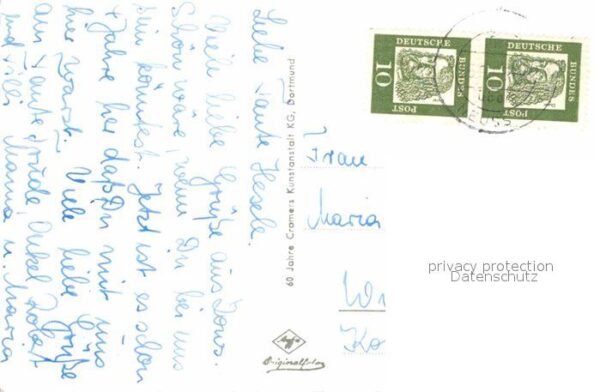 Liebe Tante Hesele.
Viele liebe Grüße aus
Schön wäre, wenn Du bei uns
sein könntest. Jetzt ist es schon
4 Jahre her daß Du mit uns
hier warst. Viele liebe Grüße
an Tante Trude, Onkel Robert
und Lilli Mama u. Maria
60 Jahre Cramers Kunstanstalt KG, Dortmund
Agfa
Originalfoto
DEUTSCHE
BUNDES
POST
10
DEUTSCHE
BUNDES
POST
10
Frau
Maria
privacy protection
Datenschutz